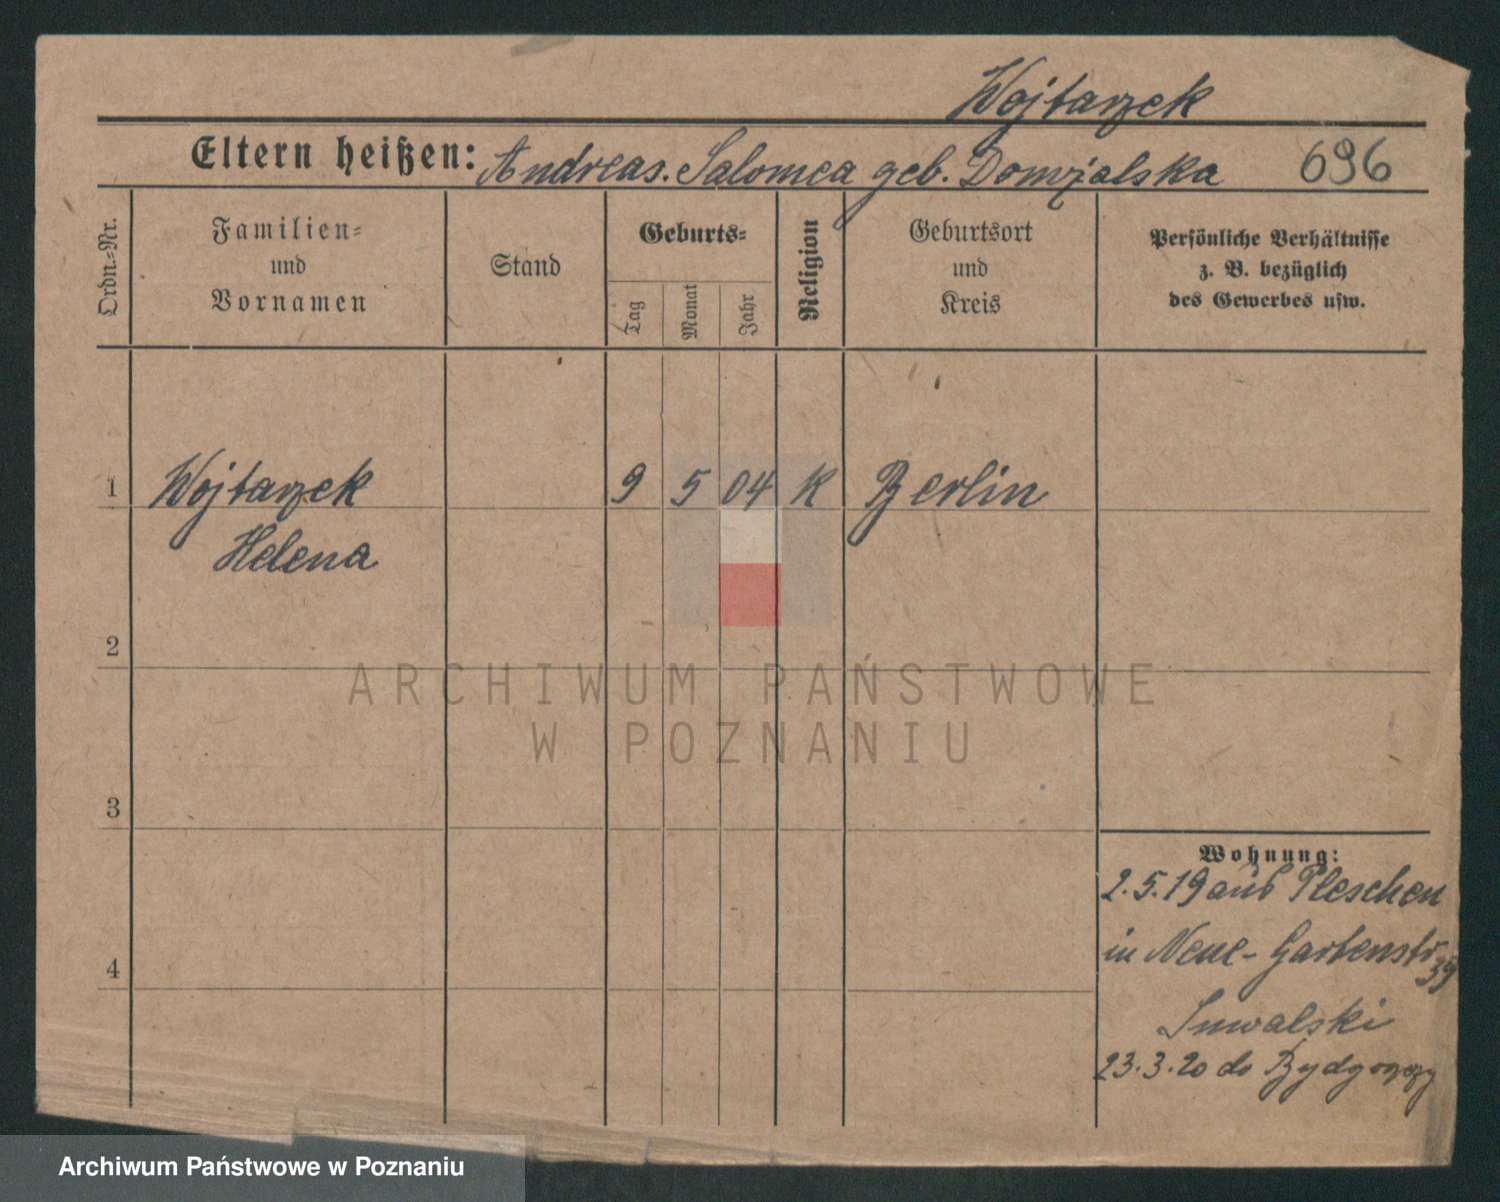 Wojtarzek
Eltern heißen: Andreas. Salomea geb. Domżalska 696
Ordn.-Nr.
Familien-
und
Vornamen
Stand
Geburts-
Tag
Monat
Jahr
Religion
Geburtsort
und
Kreis
Persönliche Verhältnisse
z. B. bezüglich
des Gewerbes usw.
1 Wojtarzek 9 5 04 K Berlin
Helena
2
ARCHIWUM PAŃSTWOWE
W POZNANIU
3
4
Wohnung:
2.5.19 aus Pleschen
in Neue-Gartenstr 39
Suwalski
23.3.20 do Bydgoszczy
Archiwum Państwowe w Poznaniu